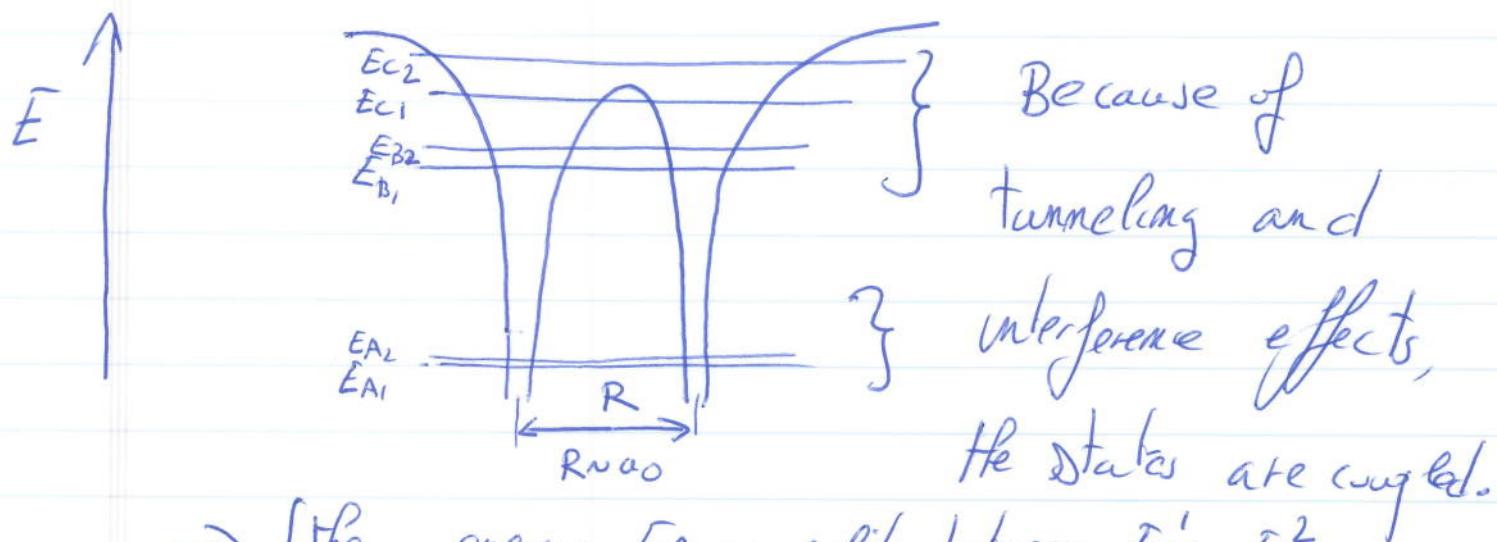 E
E_C2
E_C1
E_B2
E_B1
E_A2
E_A1
R
R~a₀
Because of
tunneling and
interference effects,
the states are coupled.